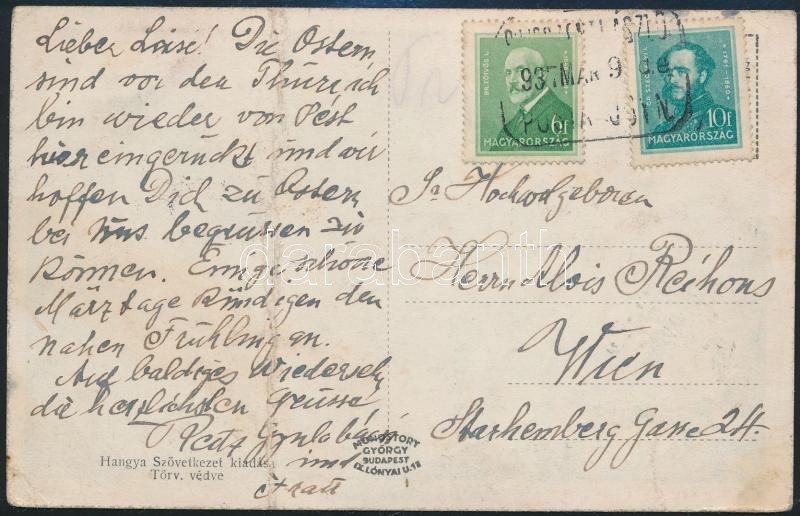 Lieber Luise! Die Ostern
sind vor den Thüre, ich
bin wieder von Pest
hier eingerückt und wir
hoffen Dich zu Ostern
bei uns begrüssen zu
können. Einige schöne
Märztage kündigen den
nahen Frühling an.
Auf baldiges Wiederseh
die herzlichsten Grüsse
und
Frau
Hangya Szövetkezet kiadása
Törv. védve
MONOSTORY
GYÖRGY
BUDAPEST
IX. LÓNYAI U. 18
BR. EÖTVÖS L.
6f
MAGYARORSZÁG
10f
MAGYARORSZÁG
93 MAR 9
Sr Hochwolgeboren
Herrn Alois Réhons
Wien
Starhemberg Gasse 24.
darabanth